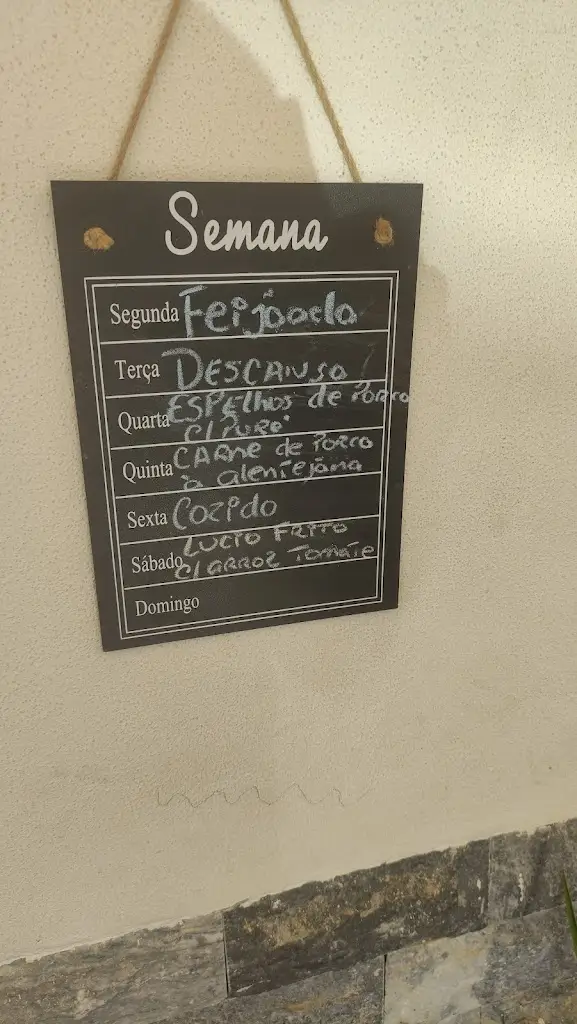 Semana
Segunda Feijoada
Terça DESCANSO
Quarta ESPElhos de PORCO
c/ PURÉ
Quinta CARNe de PORCO
à alentejana
Sexta Cozido
Sábado LUCIO FRITO
c/ ARROZ Tomate
Domingo